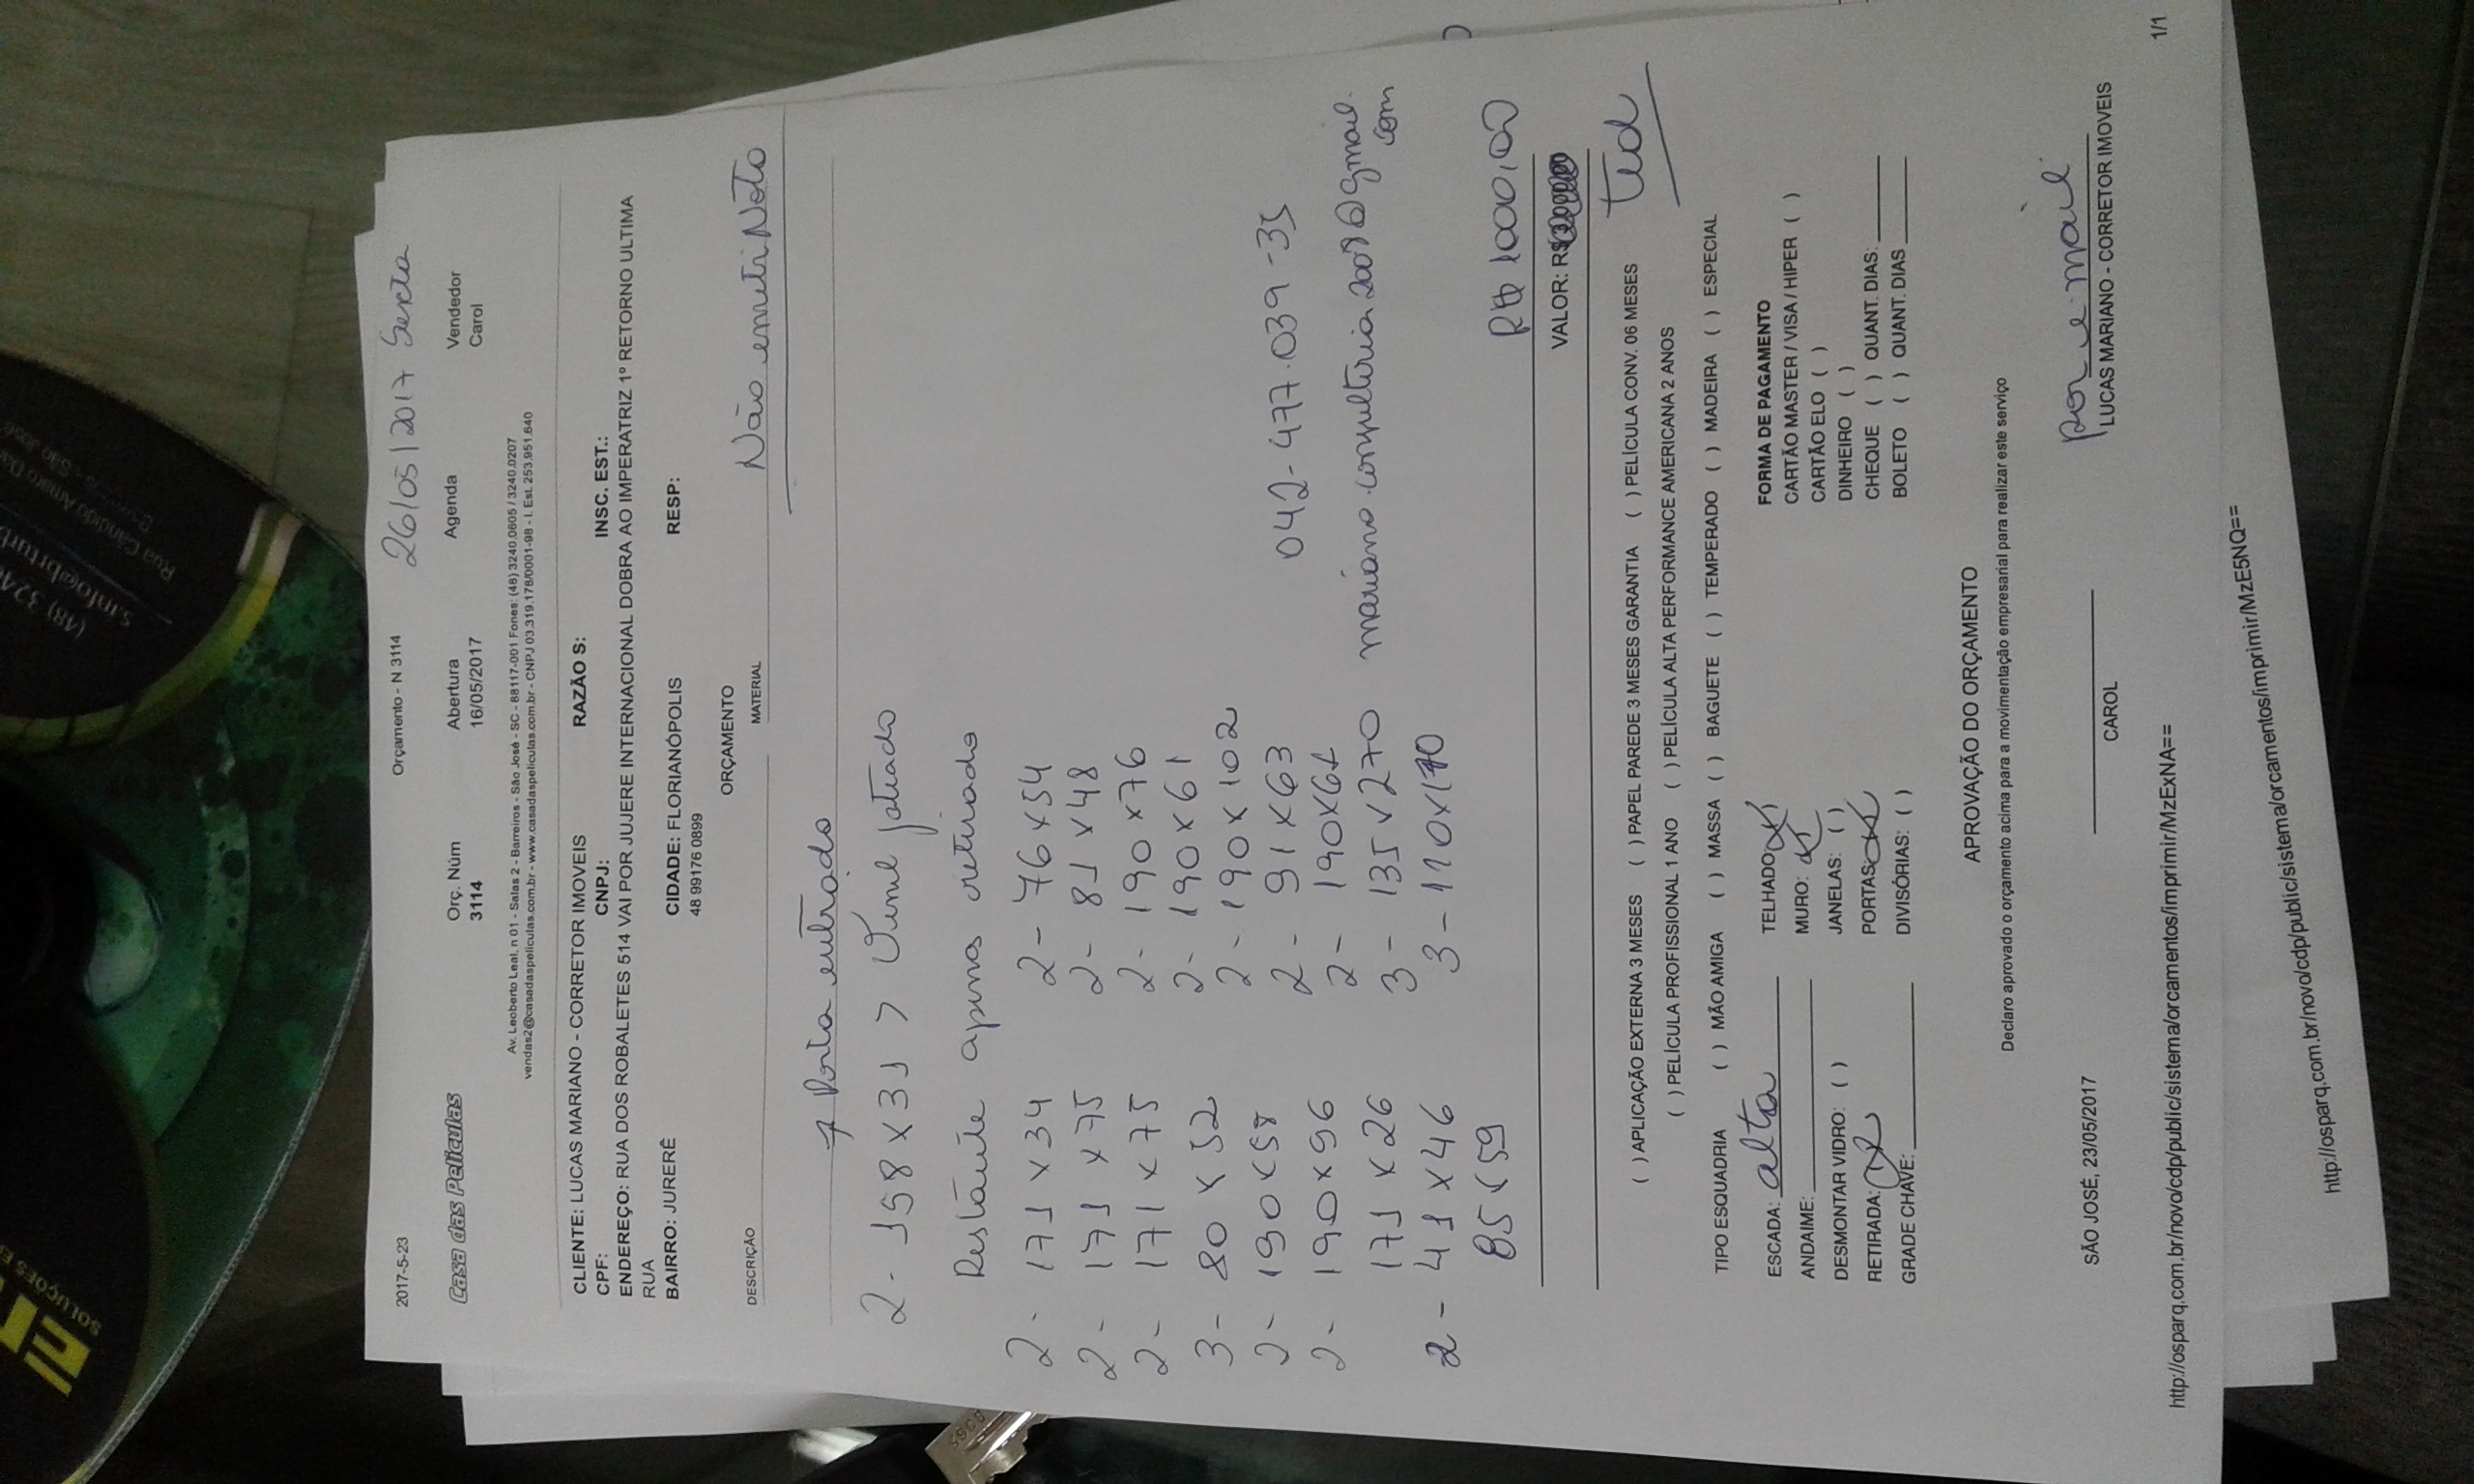 2017-5-23
Orçamento - N 3114
26/05/2017 Sexta
Casa das Películas
Orç. Núm
3114
Abertura
16/05/2017
Agenda
Vendedor
Carol
Av. Leoberto Leal, n 01 - Salas 2 - Barreiros - São José - SC - 88117-001 Fones: (48) 3240.0605 / 3240.0207
vendas2@casadaspeliculas.com.br - www.casadaspeliculas.com.br - CNPJ 03.319.178/0001-98 - I. Est. 253.951.640
CLIENTE: LUCAS MARIANO - CORRETOR IMOVEIS RAZÃO S:
CPF: CNPJ: INSC. EST.:
ENDEREÇO: RUA DOS ROBALETES 514 VAI POR JUJERE INTERNACIONAL DOBRA AO IMPERATRIZ 1º RETORNO ULTIMA
RUA
BAIRRO: JURERÊ CIDADE: FLORIANÓPOLIS RESP:
48 99176 0899
ORÇAMENTO
DESCRIÇÃO MATERIAL
Não emitir Nota
Porta entrada
2 - 158 x 31 > Vinil jateado
Restante apenas retirada
2 - 171 x 34 2 - 76 x 54
2 - 171 x 75 2 - 81 x 48
2 - 171 x 75 2 - 190 x 76
3 - 80 x 52 2 - 190 x 61
2 - 190 x 58 2 - 190 x 102
2 - 190 x 96 2 - 91 x 63
171 x 26 2 - 190 x 61
2 - 41 x 46 3 - 135 x 270
85 x 59 3 - 110 x 170
042-477.039-35
mariano.consultoria2009@gmail.
com
R$ 1000,00
VALOR: R$
Ted
( ) APLICAÇÃO EXTERNA 3 MESES ( ) PAPEL PAREDE 3 MESES GARANTIA ( ) PELÍCULA CONV. 06 MESES
( ) PELÍCULA PROFISSIONAL 1 ANO ( ) PELÍCULA ALTA PERFORMANCE AMERICANA 2 ANOS
TIPO ESQUADRIA ( ) MÃO AMIGA ( ) MASSA ( ) BAGUETE ( ) TEMPERADO ( ) MADEIRA ( ) ESPECIAL
ESCADA: alta TELHADO: (X)
ANDAIME: MURO: (X)
DESMONTAR VIDRO: ( ) JANELAS: ( )
RETIRADA: (X) PORTAS: (X)
GRADE CHAVE: DIVISÓRIAS: ( )
FORMA DE PAGAMENTO
CARTÃO MASTER / VISA / HIPER ( )
CARTÃO ELO ( )
DINHEIRO ( )
CHEQUE ( ) QUANT. DIAS:
BOLETO ( ) QUANT. DIAS
APROVAÇÃO DO ORÇAMENTO
Declaro aprovado o orçamento acima para a movimentação empresarial para realizar este serviço
por e-mail
SÃO JOSÉ, 23/05/2017
CAROL
LUCAS MARIANO - CORRETOR IMOVEIS
http://osparq.com.br/novo/cdp/public/sistema/orcamentos/imprimir/MzExNA==
1/1
http://osparq.com.br/novo/cdp/public/sistema/orcamentos/imprimir/MzE5NQ==
Rua Cândido Amaro Da
SOLUÇÕES E